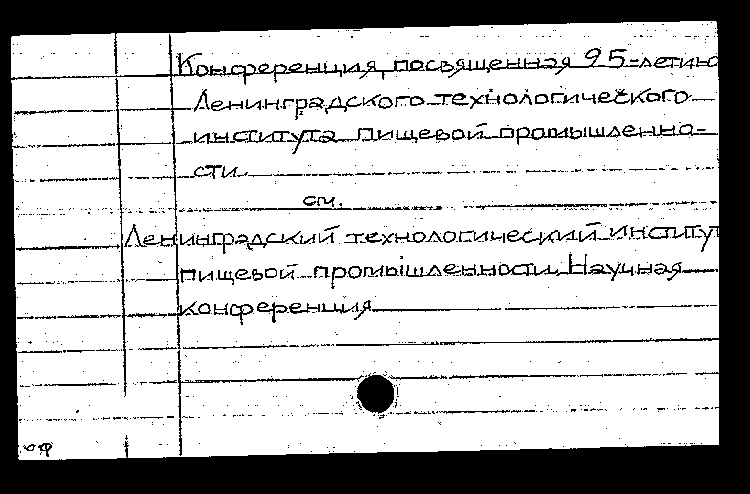 Конференция, посвященная 95-летию
Ленинградского технологического
института пищевой промышленно-
сти.
см.
Ленинградский технологический институт
пищевой промышленности. Научная
конференция